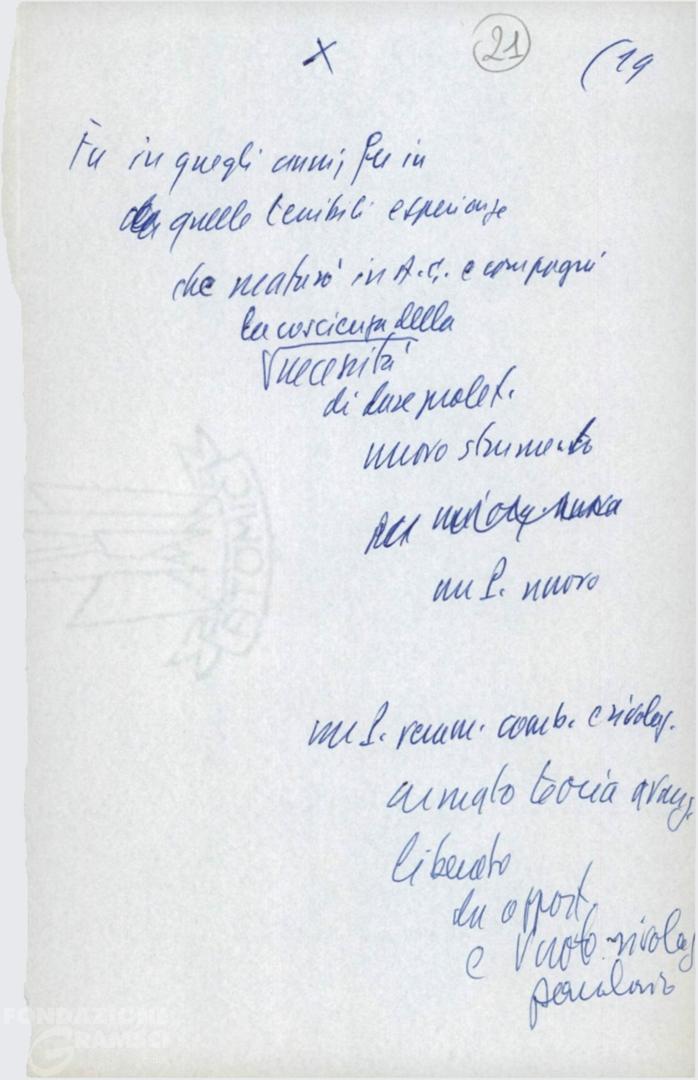 X 21 (19
Fu in quegli anni, fu in
da quelle terribili esperienze
che maturò in A.G. e compagni
la coscienza della
necessità
di dare prolet.
nuovo strumento
per
un P. nuovo
un P. veram. comb. e rivoluz.
armato teoria avanz.
liberato
da opport.
e vuoto rivoluz
parolaio
FONDAZIONE
GRAMSCI